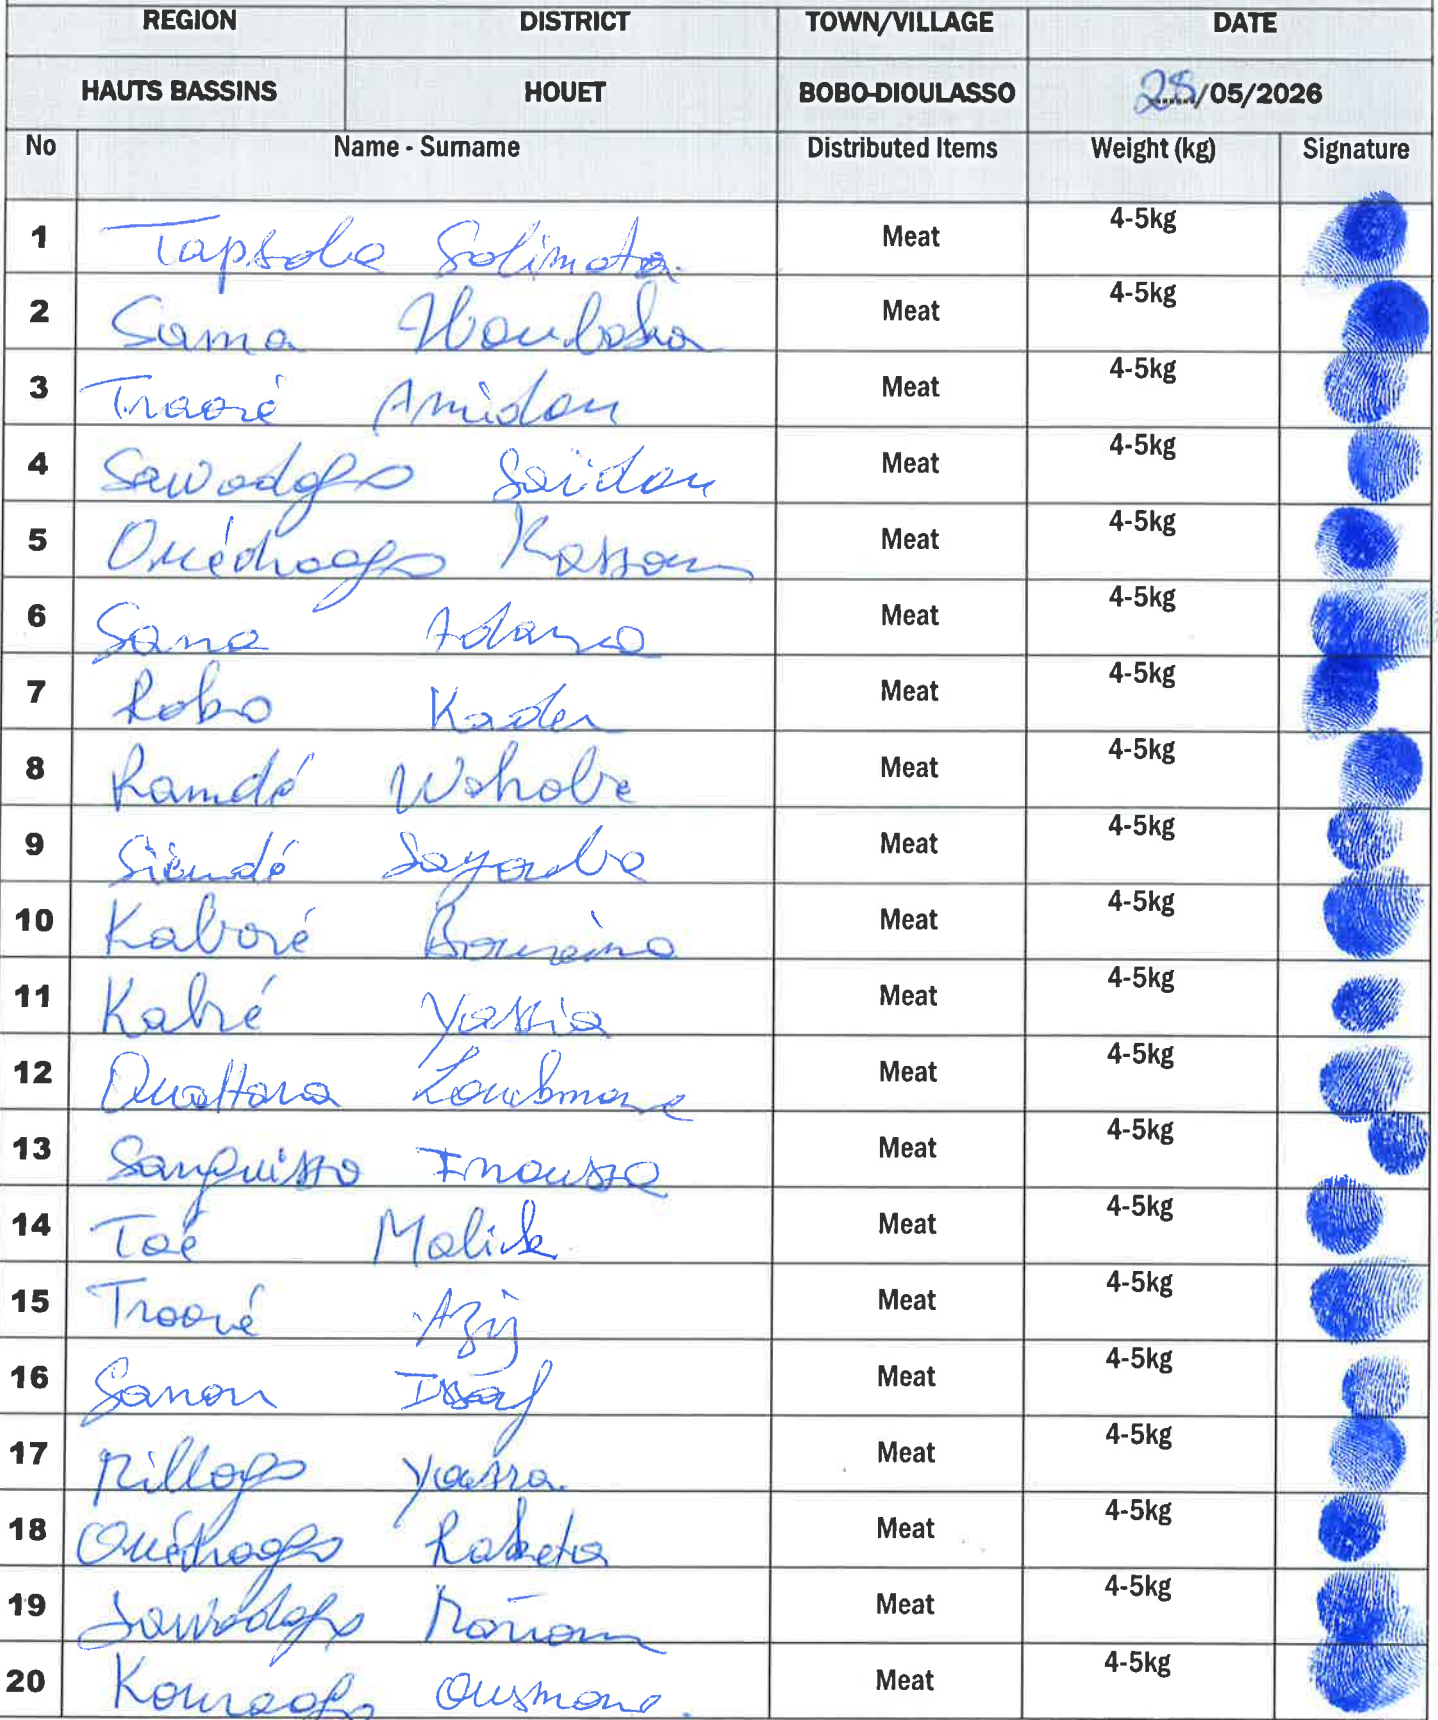 REGION DISTRICT TOWN/VILLAGE DATE
HAUTS BASSINS HOUET BOBO-DIOULASSO 28/05/2026
No Name - Surname Distributed Items Weight (kg) Signature
1 Tapsoba Salimata Meat 4-5kg
2 Sama Meat 4-5kg
3 Traoré Amidou Meat 4-5kg
4 Sawadogo Saïdou Meat 4-5kg
5 Ouédraogo Kassoum Meat 4-5kg
6 Sana Adama Meat 4-5kg
7 Robo Kader Meat 4-5kg
8 Ramdé Wahabe Meat 4-5kg
9 Sayouba Meat 4-5kg
10 Kaboré Boureima Meat 4-5kg
11 Kabré Yassia Meat 4-5kg
12 Ouattara Loukmane Meat 4-5kg
13 Sanguisso Inoussa Meat 4-5kg
14 Toé Malick Meat 4-5kg
15 Traoré Aziz Meat 4-5kg
16 Sanou Issaf Meat 4-5kg
17 Millogo Yassia Meat 4-5kg
18 Ouédraogo Raketa Meat 4-5kg
19 Sawadogo Mariam Meat 4-5kg
20 Kouraogo Ousmane. Meat 4-5kg